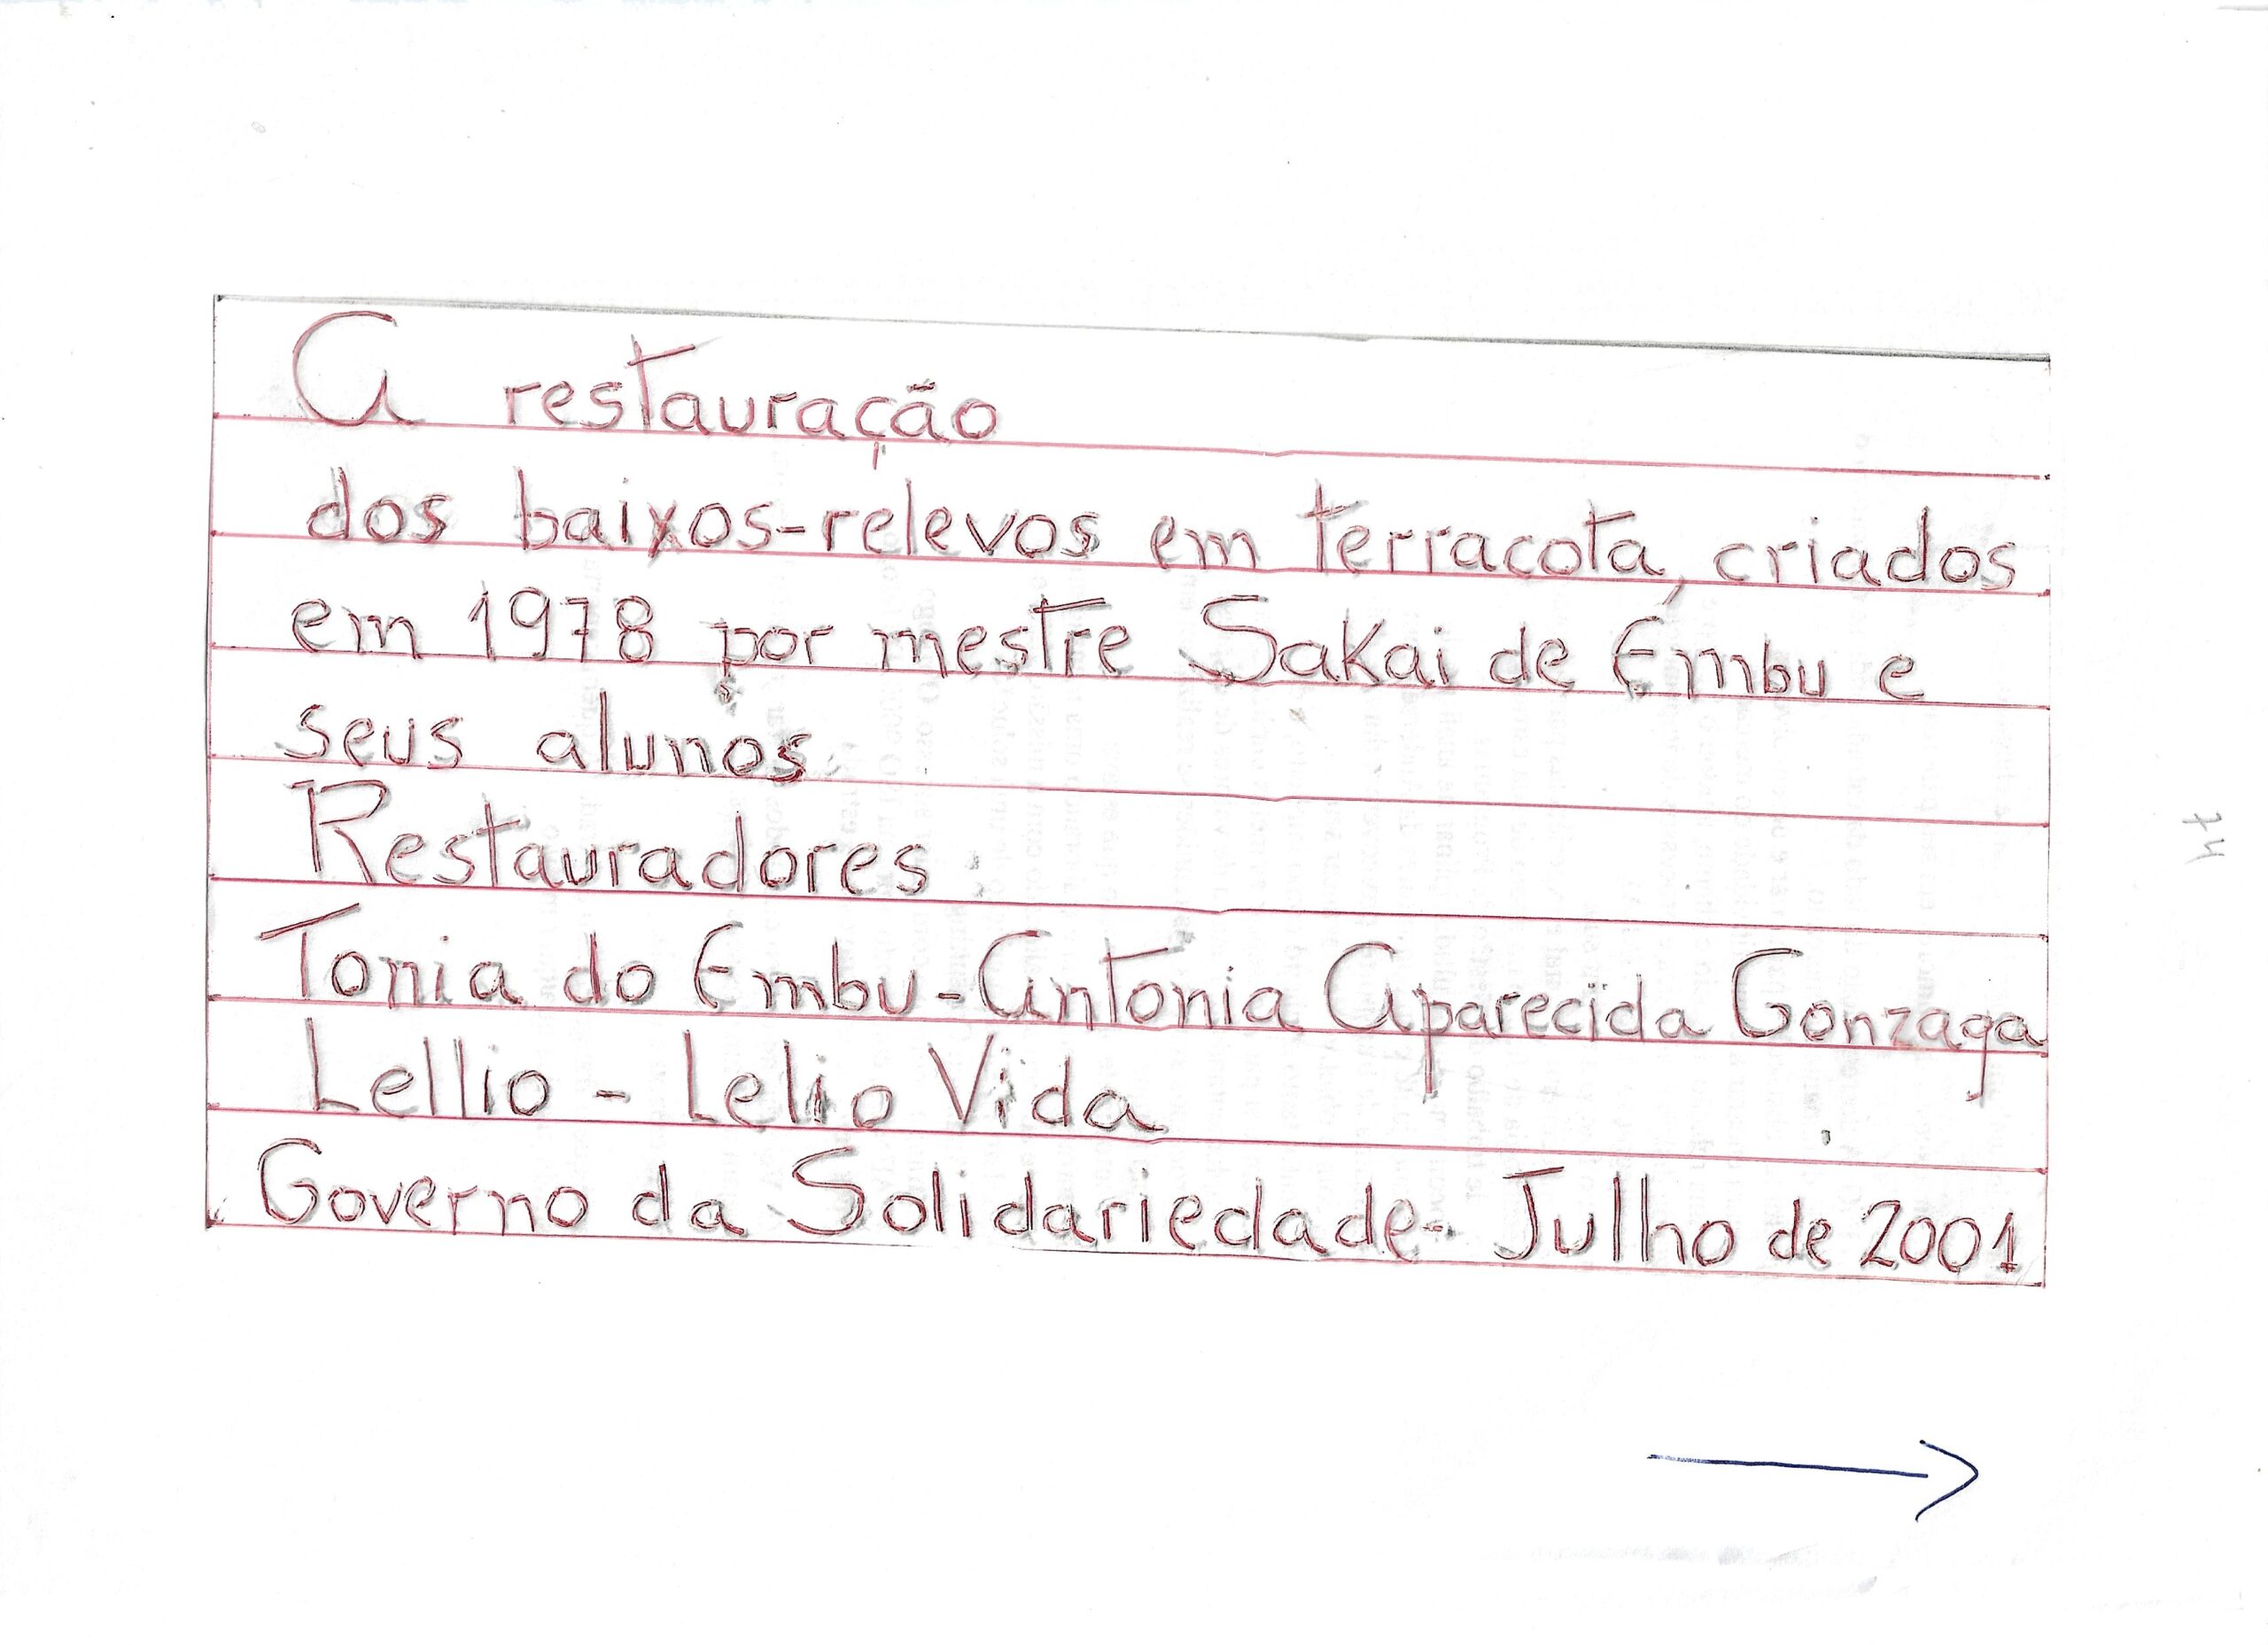 A restauração
dos baixos-relevos em terracota, criados
em 1978 por mestre Sakai de Embu e
seus alunos
Restauradores
Tonia do Embu - Antonia Aparecida Gonzaga
Lellio - Lelio Vida
Governo da Solidariedade - Julho de 2001